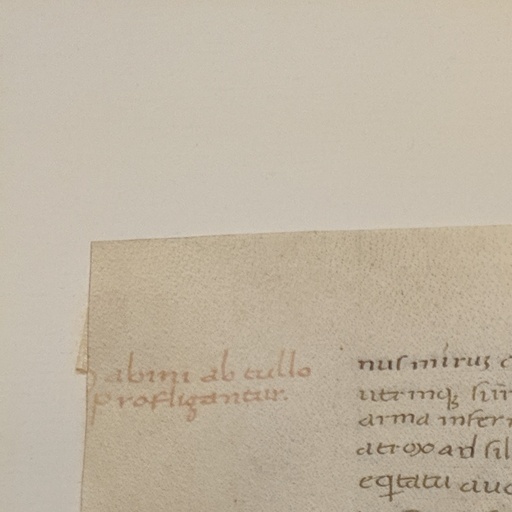 Sabini ab tullo
profligantur.
nuſ mirus
utrinq;
arma infer
atrox ad ſil
eqtatu auc